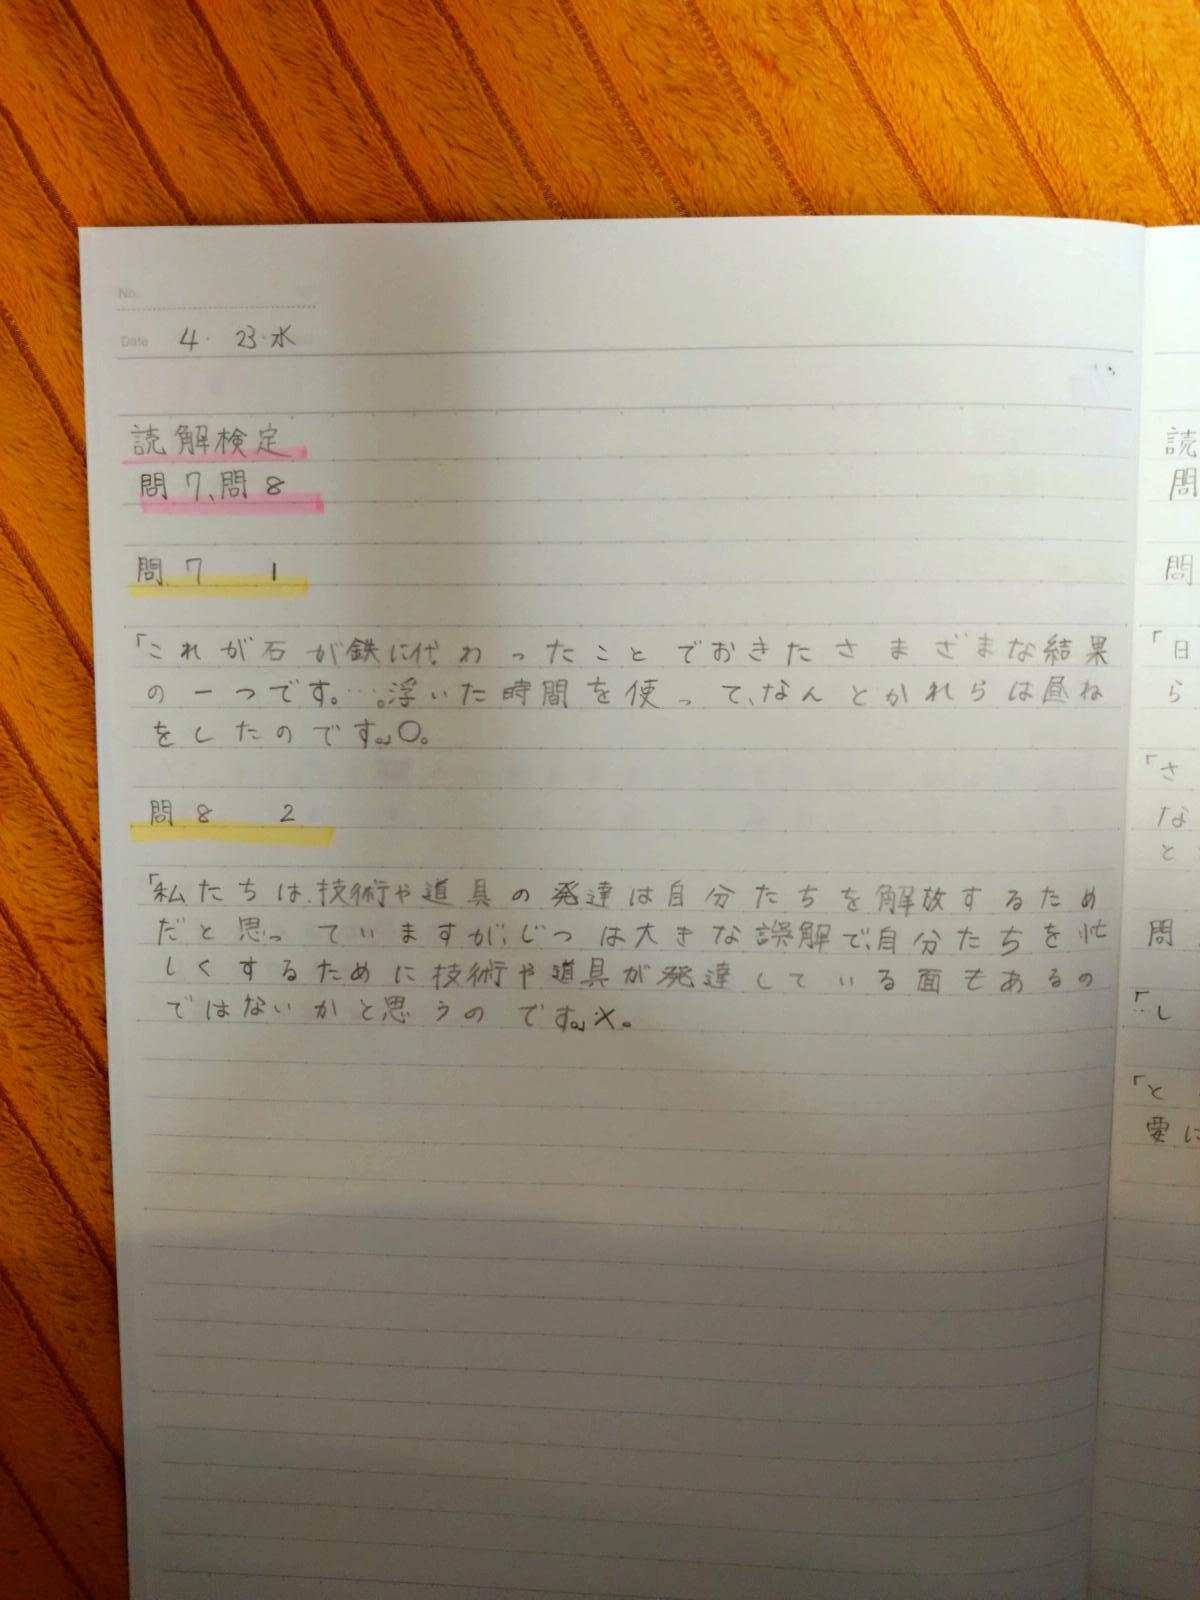 No.
Date 4・23・水
読解検定
問7、問8
問7 1
「これが石が鉄に代わったことでおきたさまざまな結果
の一つです。…。浮いた時間を使って、なんとかれらは昼ね
をしたのです。」〇。
問8 2
「私たちは、技術や道具の発達は自分たちを解放するため
だと思っていますが、じつは大きな誤解で、自分たちを忙
しくするために技術や道具が発達している面もあるの
ではないかと思うのです。」×。
読
問
問
「日
ら
「さ
な
と
問
「し
「と
要に